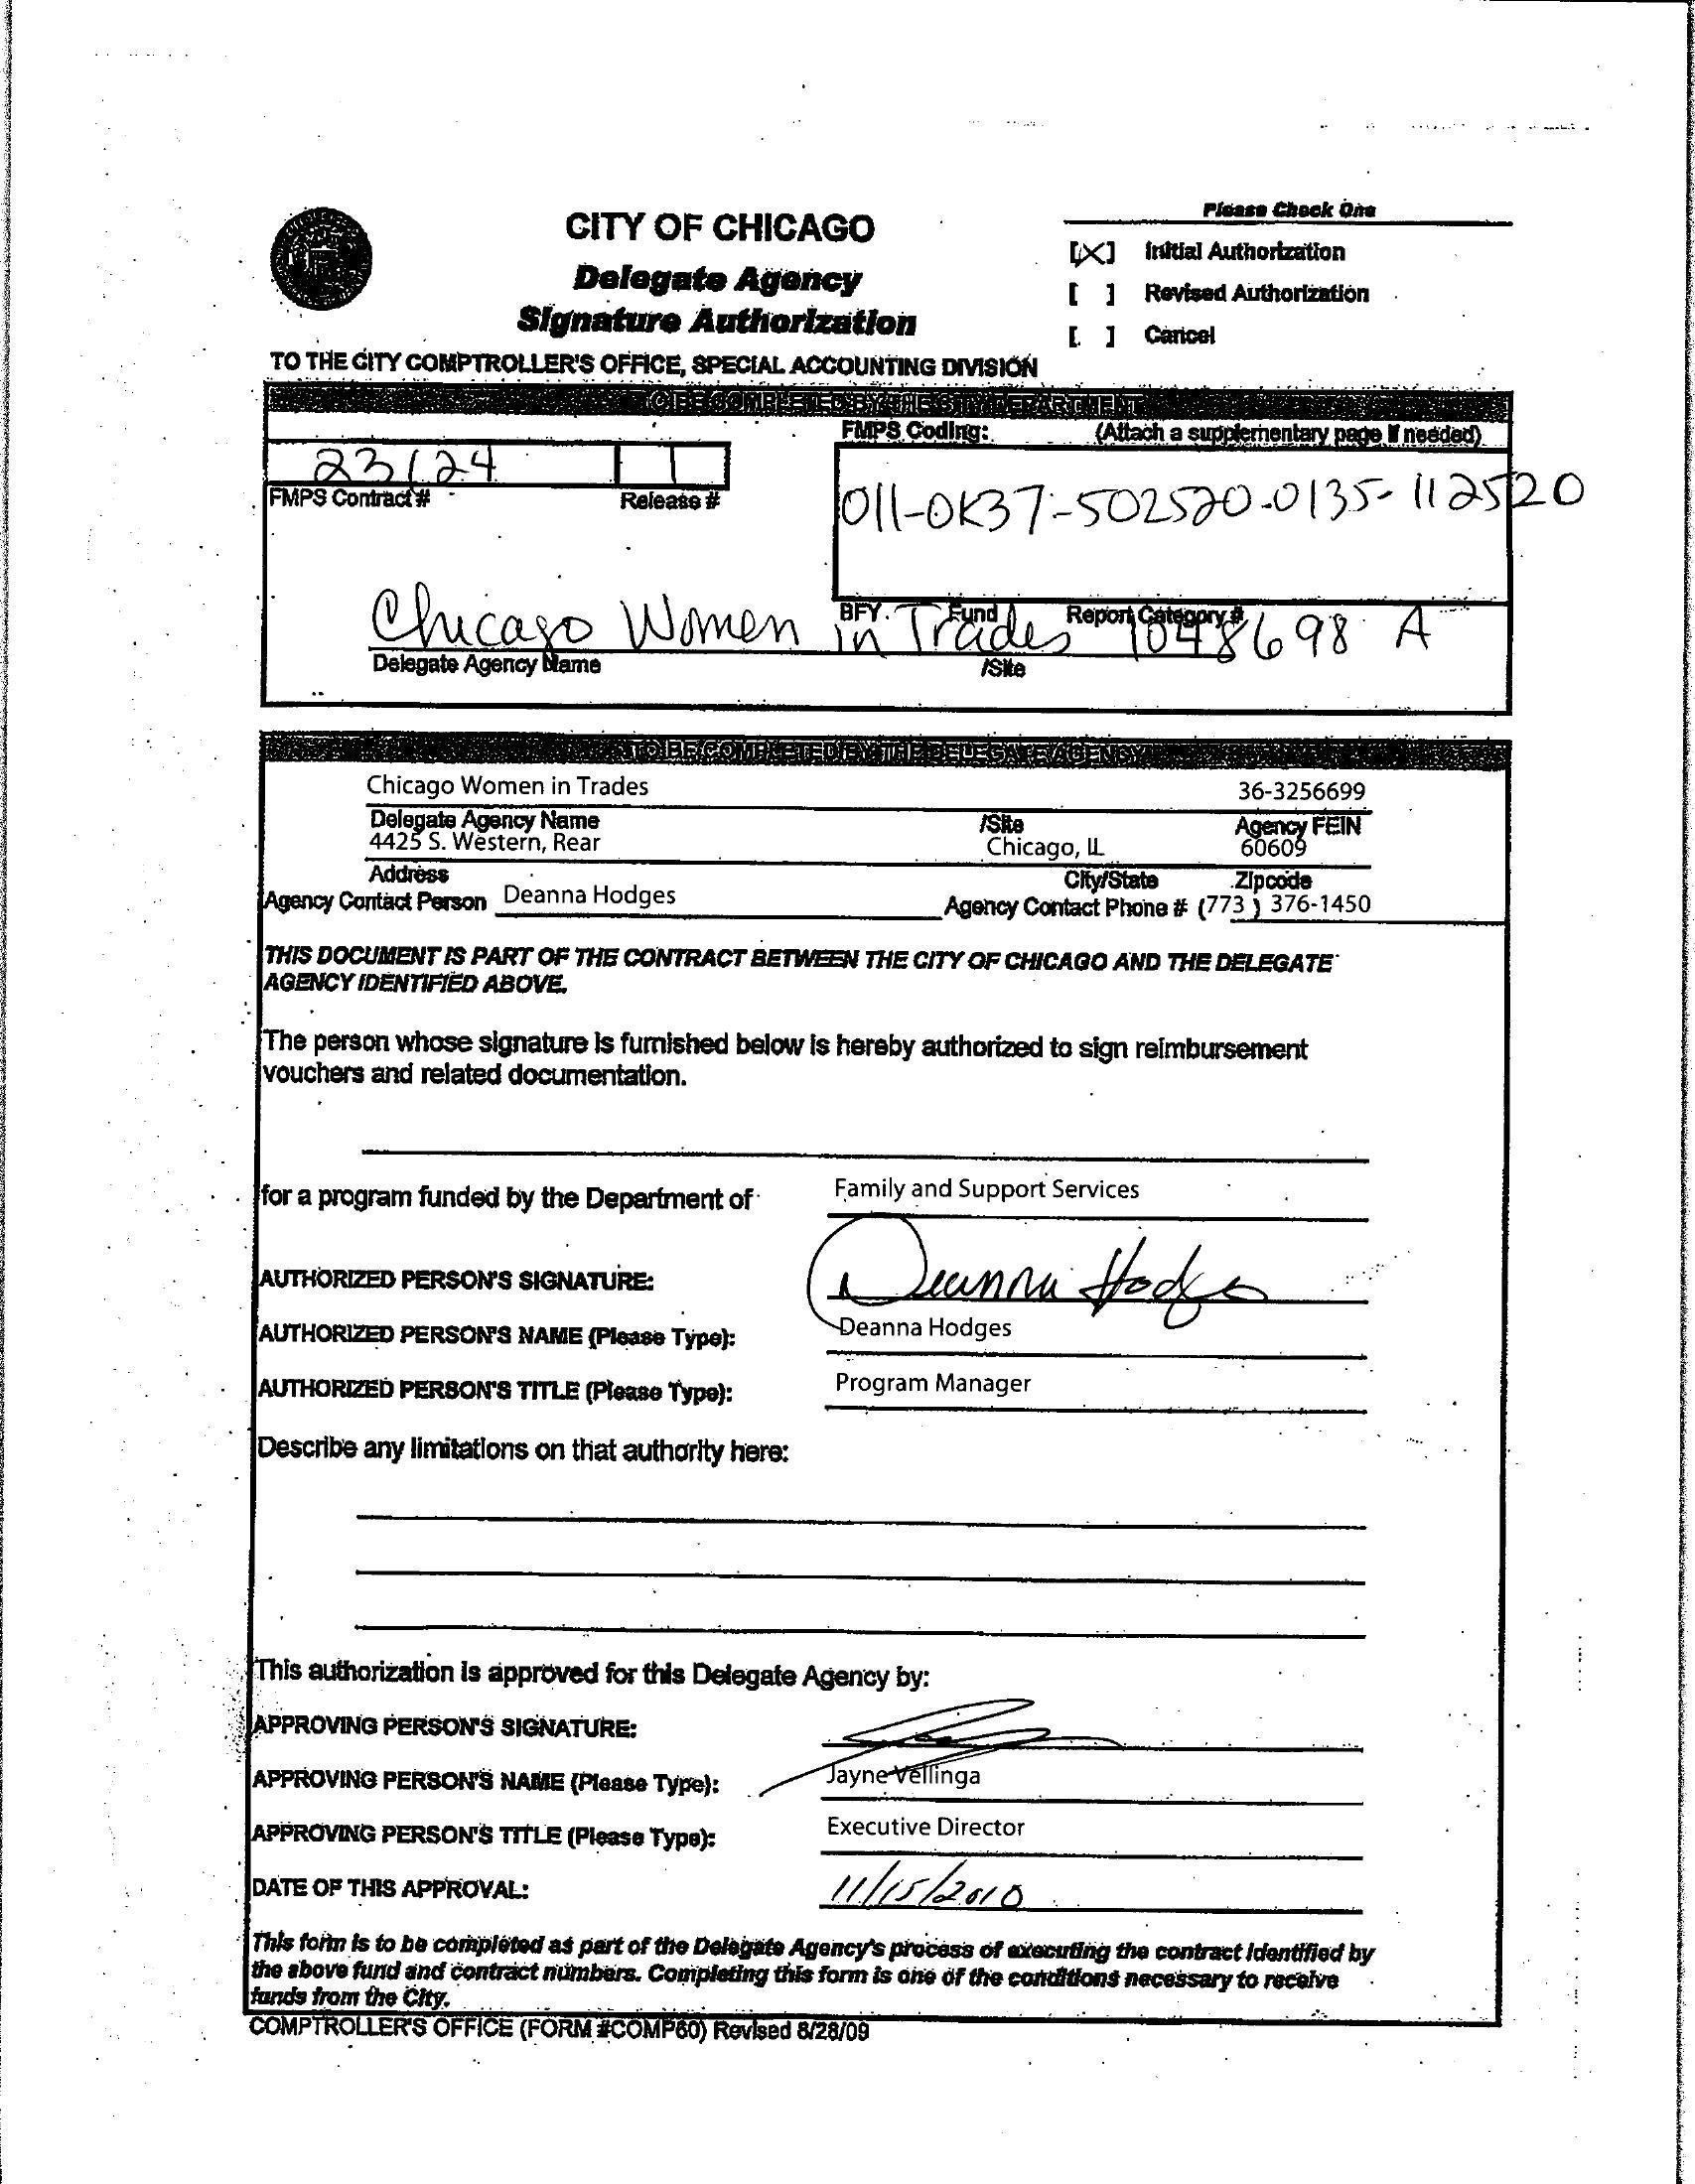 Please Check One
CITY OF CHICAGO
Delegate Agency
Signature Authorization
[X] Initial Authorization
[ ] Revised Authorization
[ ] Cancel
TO THE CITY COMPTROLLER'S OFFICE, SPECIAL ACCOUNTING DIVISION
TO BE COMPLETED BY THE CITY DEPARTMENT
FMPS Coding: (Attach a supplementary page if needed)
23124
FMPS Contract # Release #
011-0K37-502520-0135-112520
BFY Fund Report Category #
Chicago Women in Trades 1048698 A
Delegate Agency Name /Site
TO BE COMPLETED BY THE DELEGATE AGENCY
Chicago Women in Trades 36-3256699
Delegate Agency Name /Site Agency FEIN
4425 S. Western, Rear Chicago, IL 60609
Address City/State Zipcode
Agency Contact Person Deanna Hodges Agency Contact Phone # (773 ) 376-1450
THIS DOCUMENT IS PART OF THE CONTRACT BETWEEN THE CITY OF CHICAGO AND THE DELEGATE
AGENCY IDENTIFIED ABOVE.
The person whose signature is furnished below is hereby authorized to sign reimbursement
vouchers and related documentation.
for a program funded by the Department of Family and Support Services
AUTHORIZED PERSON'S SIGNATURE: Deanna Hodges
AUTHORIZED PERSON'S NAME (Please Type): Deanna Hodges
AUTHORIZED PERSON'S TITLE (Please Type): Program Manager
Describe any limitations on that authority here:
This authorization is approved for this Delegate Agency by:
APPROVING PERSON'S SIGNATURE:
APPROVING PERSON'S NAME (Please Type): Jayne Vellinga
APPROVING PERSON'S TITLE (Please Type): Executive Director
DATE OF THIS APPROVAL: 11/15/2010
This form is to be completed as part of the Delegate Agency's process of executing the contract identified by
the above fund and contract numbers. Completing this form is one of the conditions necessary to receive
funds from the City.
COMPTROLLER'S OFFICE (FORM #COMP60) Revised 8/28/09